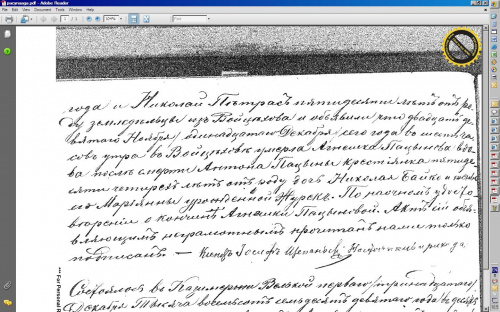 pacynaaga.pdf - Adobe Reader
File Edit View Document Tools Window Help
года и Николай Петрасъ пятидесяти лѣтъ отъ ро
ду земледѣльцы изъ и объявили что двадцать де
вятаго Ноября одинадцатаго Декабря сего года въ шесть ча
совъ утра во умерла Агнешка Пацынова вдо
ва послѣ смерти Антона Пацыны крестьянка пятиде
сяти четырехъ лѣтъ отъ роду дочь Николая Байко и
его Марьянны урожденной Журекъ. По наочномъ удосто
вѣреніи о кончинѣ Агнешки Пацыновой. Актъ сей объя
вляющимъ неграмотнымъ прочитанъ нами только
подписанъ. — Ксендзъ Іосифъ прихода
*** For Personal R
Состоялось въ первого/тринадцатаго/
Декабря тысяча восемьсотъ семьдесятъ девятаго года